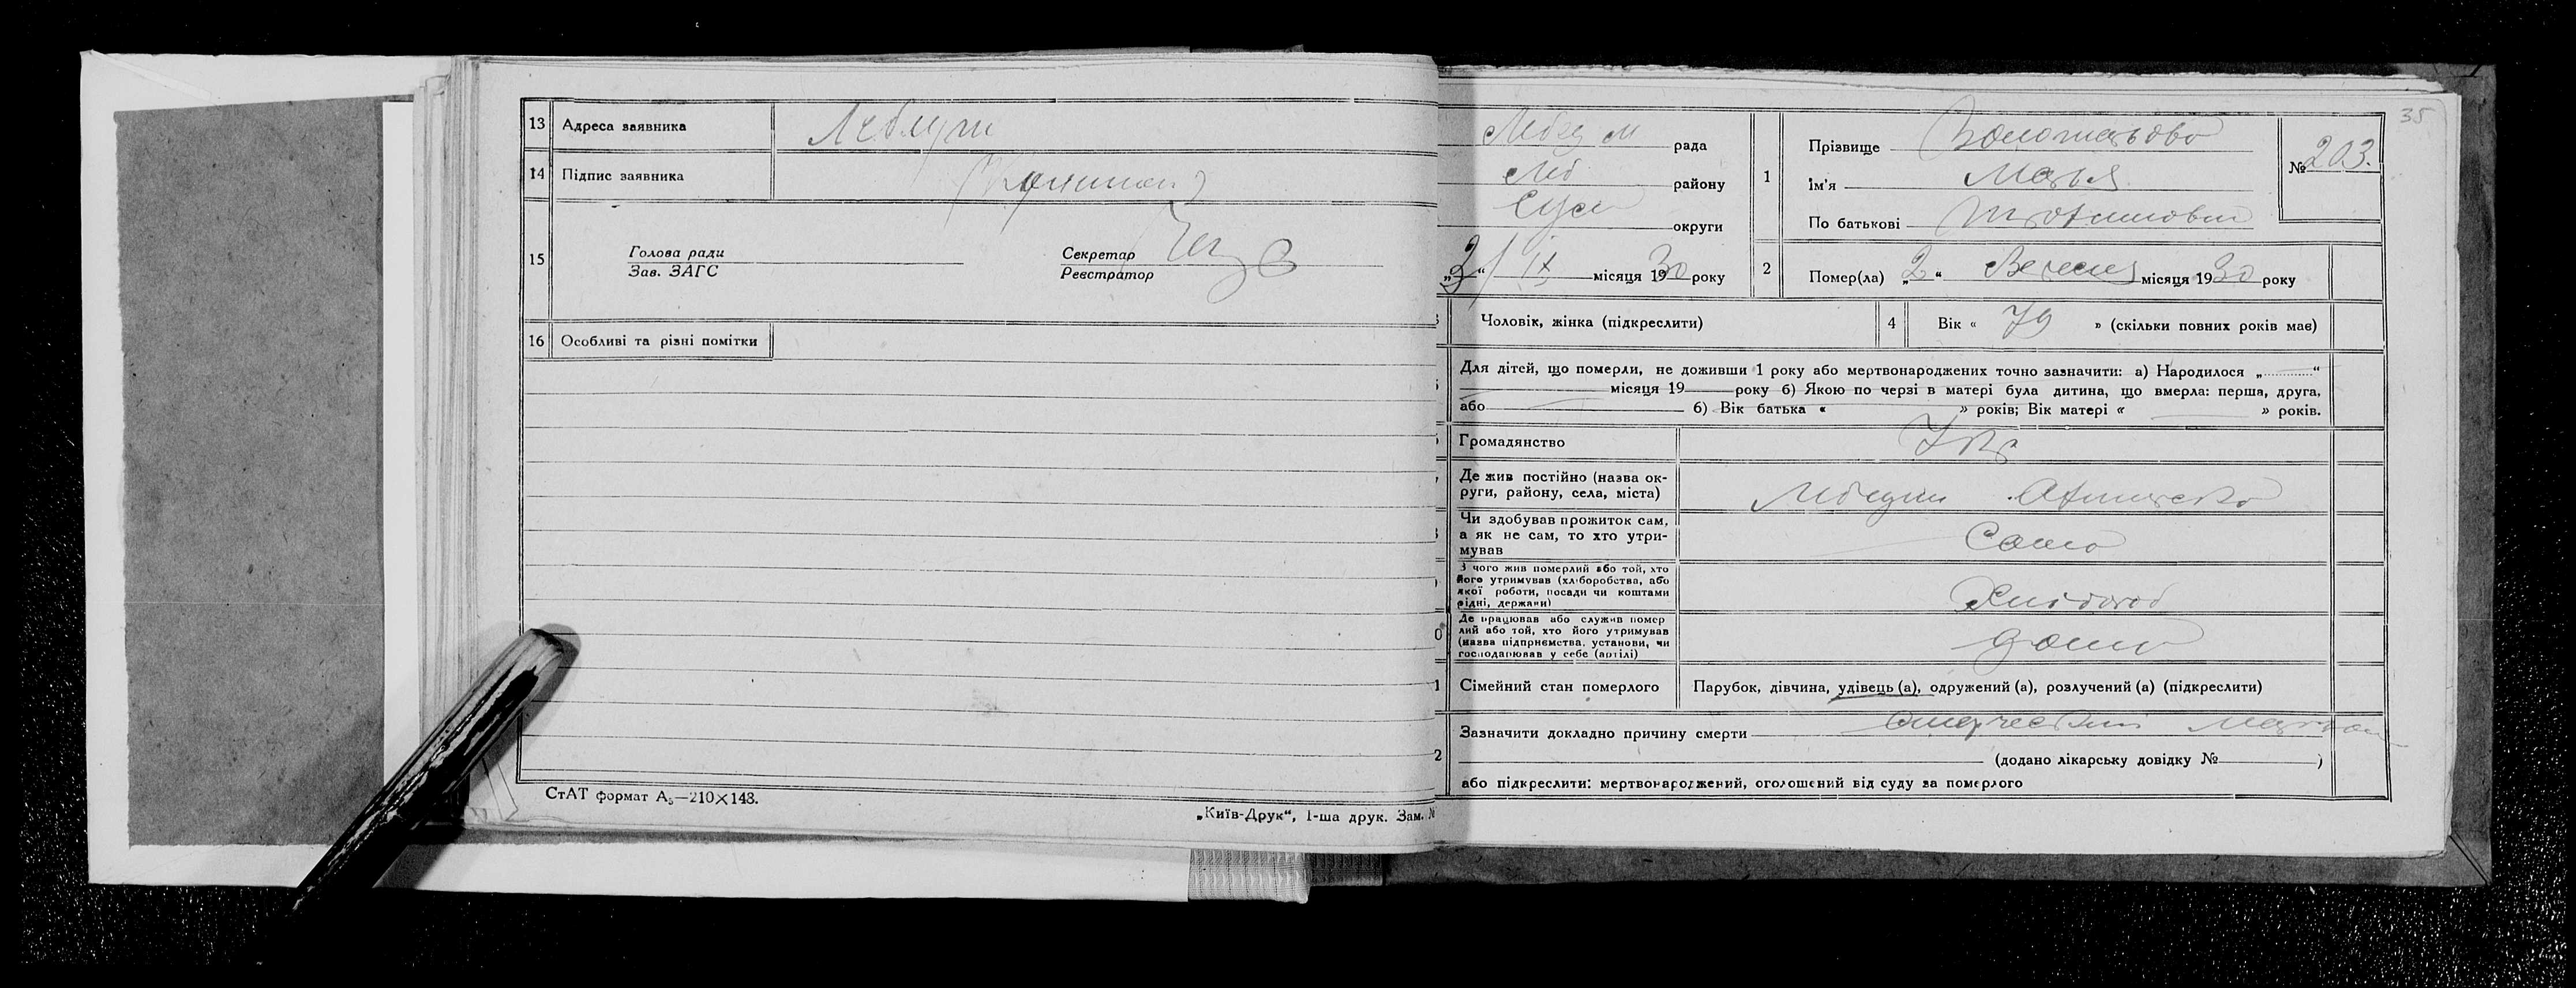 13 Адреса заявника
14 Підпис заявника
15 Голова ради
Зав. ЗАГС
Секретар
Реєстратор
16 Особливі та різні помітки
СтАТ формат А₅—210×148.
„Київ-Друк“, 1-ша друк. Зам. №
35
рада
району
округи
„3“ IX місяця 1930 року
1 Прізвище
Ім'я Марья
По батькові
№ 203.
2 Помер(ла) „2“ Вересня місяця 1930 року
Чоловік, жінка (підкреслити)
4 Вік « 79 » (скільки повних років має)
Для дітей, що померли, не доживши 1 року або мертвонароджених точно зазначити: а) Народилося „ “
місяця 19 року б) Якою по черзі в матері була дитина, що вмерла: перша, друга,
або б) Вік батька « » років; Вік матері « » років.
Громадянство Укр
Де жив постійно (назва ок-
руги, району, села, міста)
Чи здобував прожиток сам,
а як не сам, то хто утри-
мував
Сама
З чого жив померлий або той, хто
його утримував (хліборобства, або
якої роботи, посади чи коштами
рідні, держави)
Де працював або служив помер
лий або той, хто його утримував
(назва підприємства, установи, чи
господарював у себе (артілі)
дома
1 Сімейний стан померлого Парубок, дівчина, удівець (а), одружений (а), розлучений (а) (підкреслити)
2 Зазначити докладно причину смерти
(додано лікарську довідку № )
або підкреслити: мертвонароджений, оголошений від суду за померлого